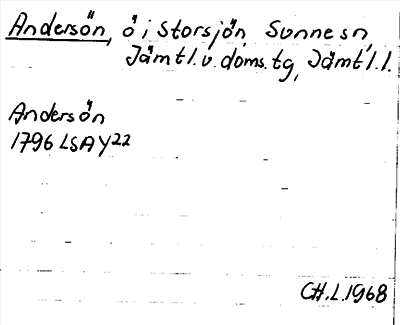 Andersön, ö i Storsjön, Sunne sn,
Jämtl. v. doms. tg, Jämtl. l.
Andersön
1796 LSA Y22
CH. L. 1968